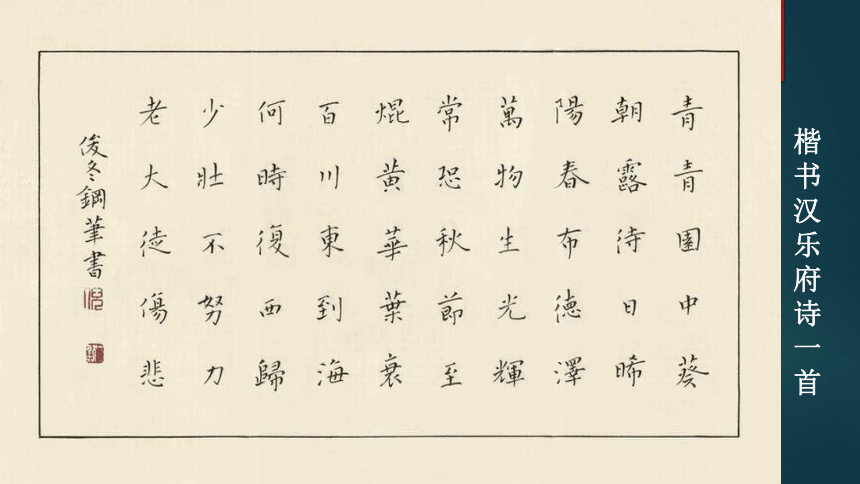 楷书汉乐府诗一首
青青園中葵
朝露待日晞
陽春布德澤
萬物生光輝
常恐秋節至
焜黄華葉衰
百川東到海
何時復西歸
少壯不努力
老大徒傷悲
俊冬鋼筆書